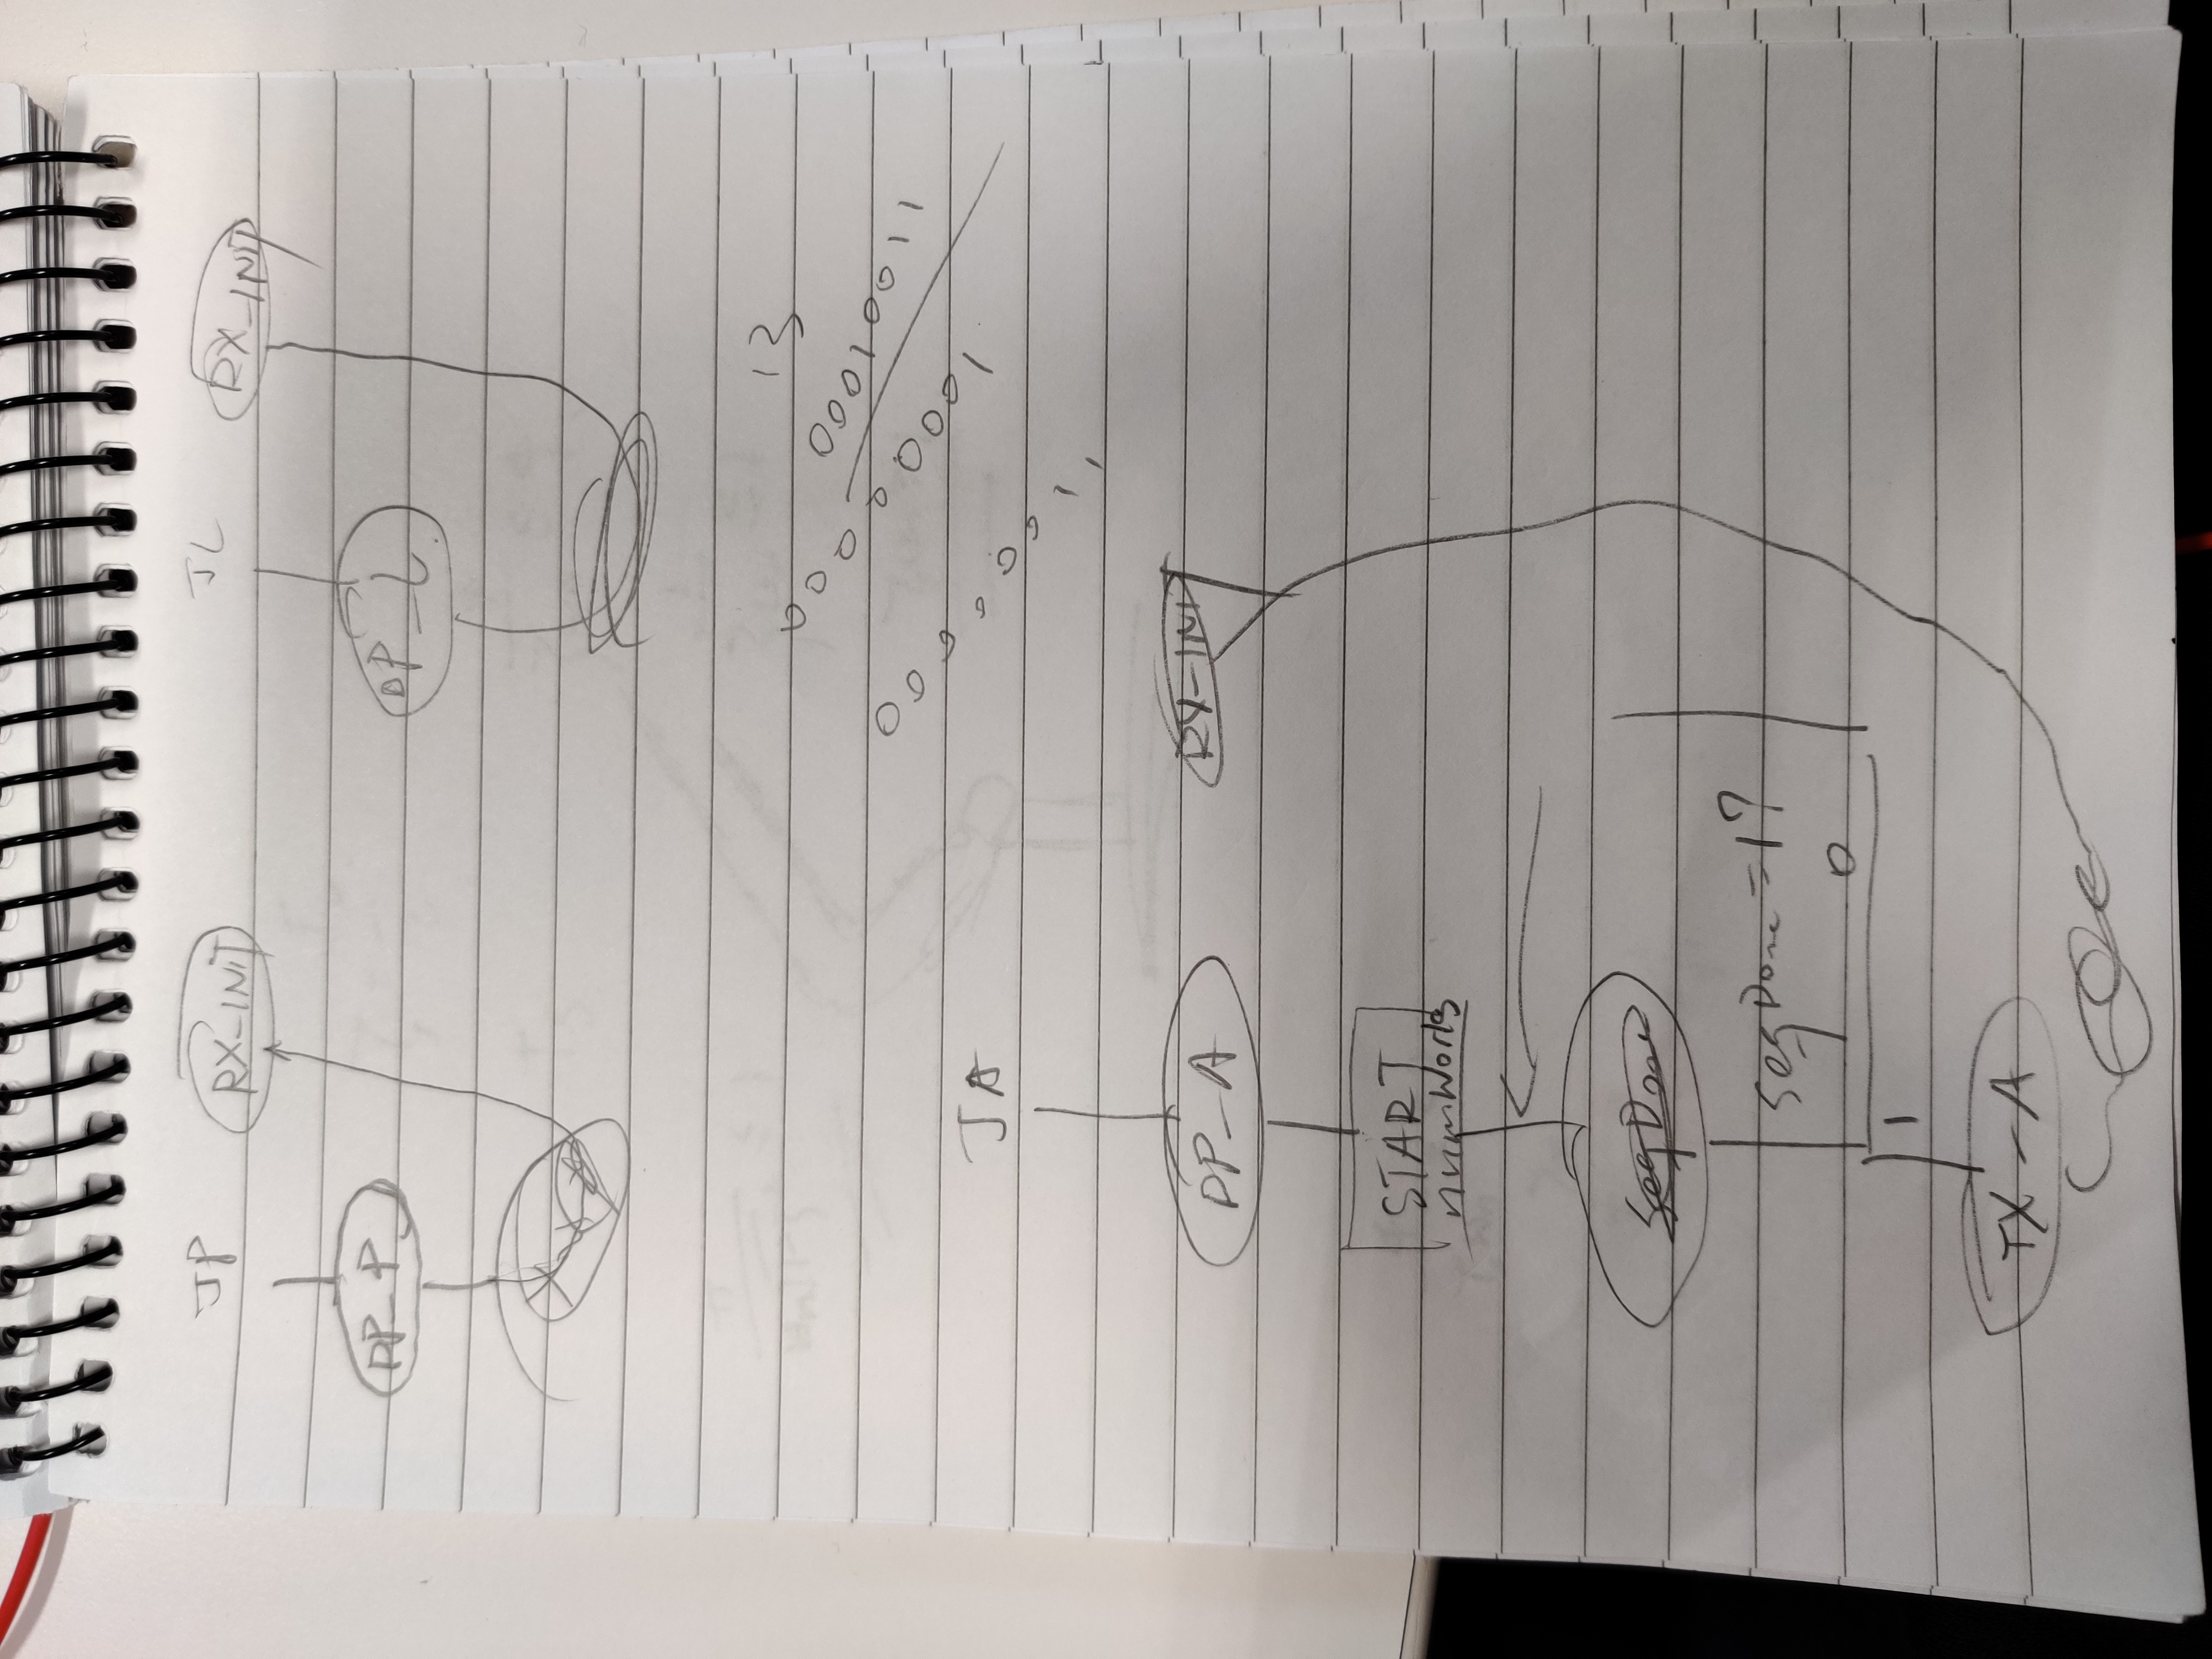 JP
RX-INIT
JL
RX-INIT
DP-P
DP-L
13
00010011
0000
0001
00000011
JA
DP-A
RX-INIT
START
numWords
seqDone
seqDone=1?
0
1
TX-A